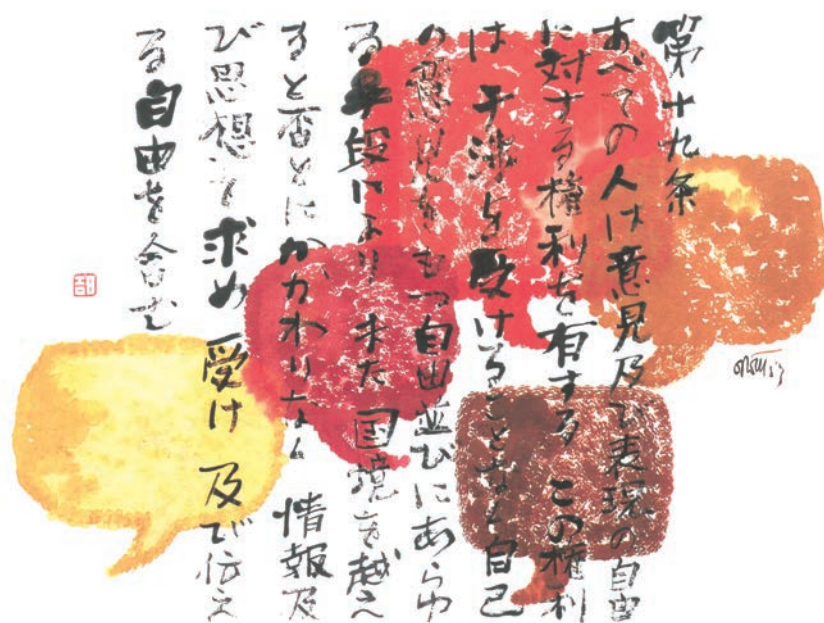 第十九条
すべての人は意見及び表現の自由
に対する権利を有する この権利
は 干渉を受けることなく自己
の意見をもつ自由並びにあらゆ
る手段により また 国境を越え
ると否とにかかわりなく 情報及
び思想を 求め 受け 及び伝え
る自由を含む